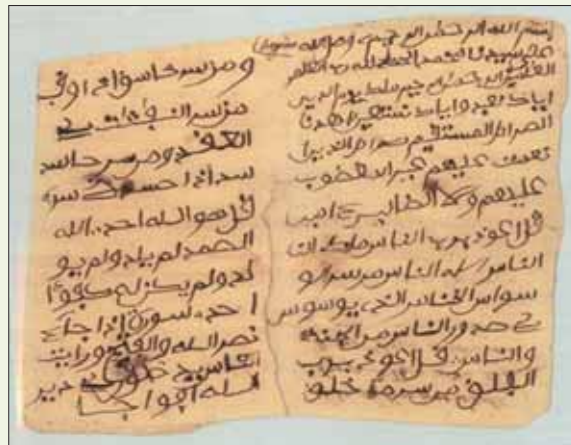 بسم الله الرحمن الرحيم وصل الله
على سيدنا محمد الحمد لله رب
الرحمن الرحيم ملك يوم الدين
اياك نعبد واياك نستعين اهدنا
الصراط المستقيم صراط الذين
نعمت عليهم غير المغضوب
عليهم ولا الضالين امين
قل اعوذ برب الناس ملك النا
الناس اله الناس من شر الو
سواس الخناس الذي يوسوس
في صدور الناس من الجنة
والناس قل اعوذ برب
الفلق من شر ما خلق
ومن شر غاسق اذا وقب
من شر النفاثات في
العقد ومن شر حاسد
سد اذا حسد
قل هو الله احد الله
الصمد لم يلد ولم يو
لد ولم يكن له كفوا
احد سورة اذا جاء
نصر الله والفتح ورايت
الناس يدخلون في دين
الله افواجا